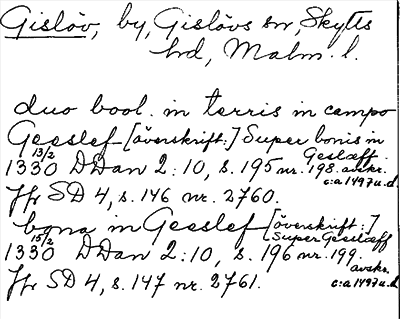 Gislöv, by, Gislövs sn, Skytts
hd, Malm. l.
duo bool. in terris in campo
Geeslef [överskrift:] Super bonis in
Geslæff.
1330 13/2 DDan 2:10, s. 195 nr. 198. avskr.
c:a 1497 u.d.
Jfr SD 4, s. 146 nr. 2760.
bona in Geeslef [överskrift:]
Super Geeslæff
1330 15/2 DDan 2:10, s. 196 nr. 199.
avskr.
Jfr SD 4, s. 147 nr. 2761. c:a 1497 u.d.